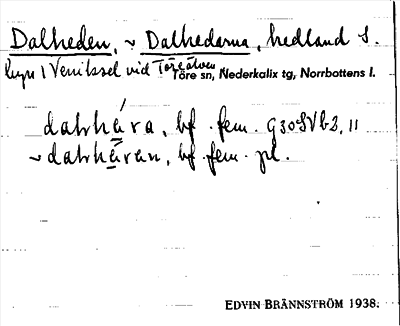 Dalheden, ~ Dalhedarna, hedland S.
byn Vennäset vid Töreälven
Töre sn, Nederkalix tg, Norrbottens l.
dalhä́ra, bf. fem. G30SVb3, 11
~ dalhä́ran, bf. fem. pl.
EDVIN BRÄNNSTRÖM 1938.